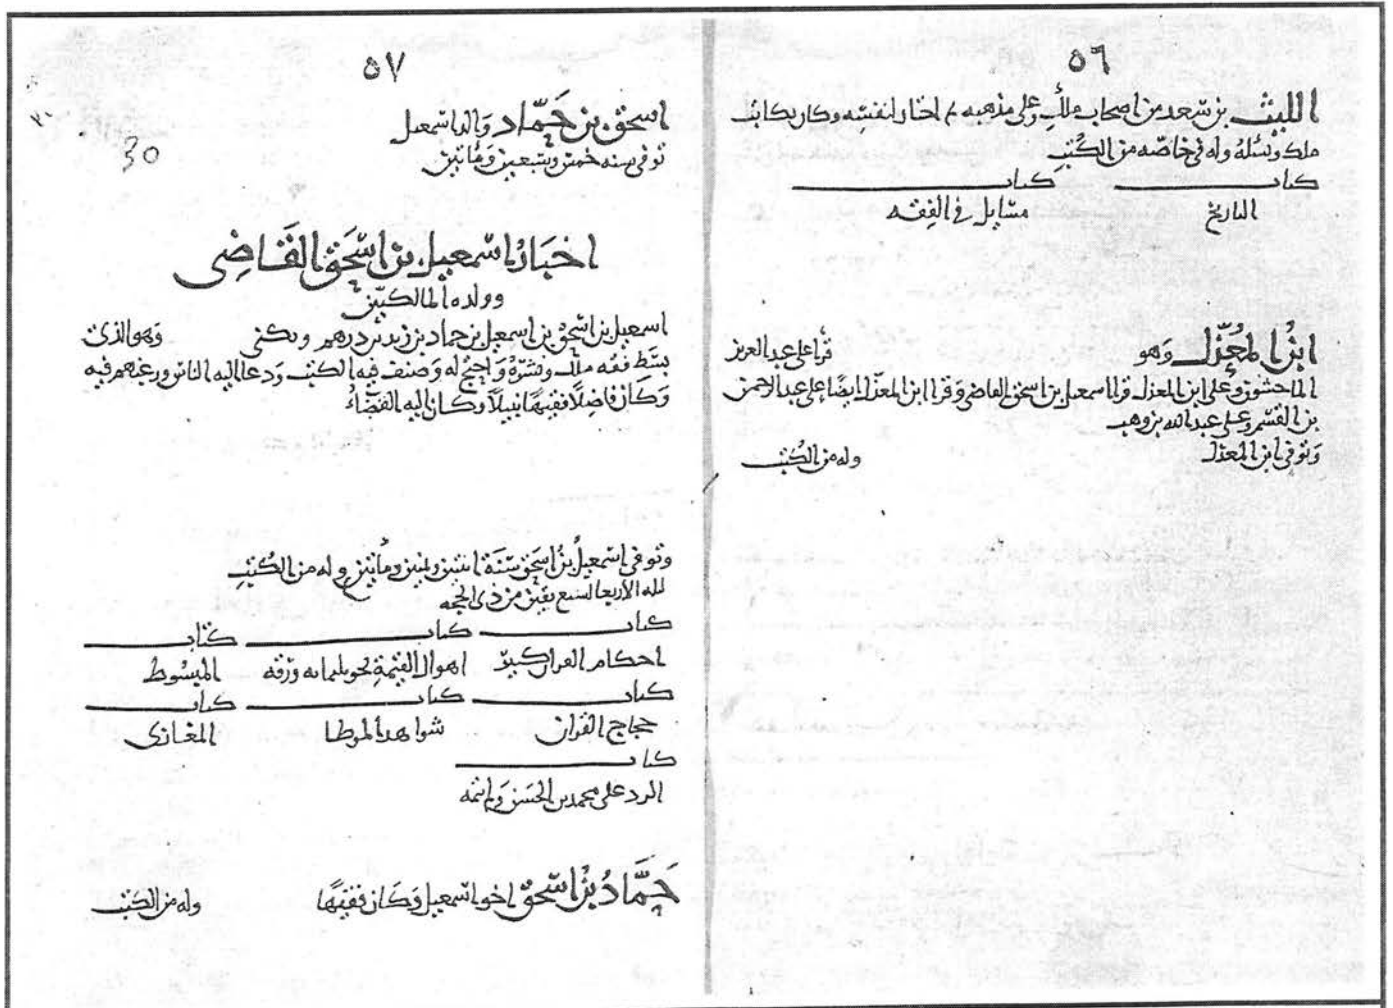 ٥٦
الليث بن سعد من اصحاب ملك وعلى مذهبه ثم اختار لنفسه وكان يكاتب
ملك ويسئله وله في خاصه من الكتب
كتاب كتاب
التاريخ مسايل في الفقه
ابن المعزل وهو قرأ على عبد العزيز
الماجشون وعلى ابن المعذل قرا اسمعيل بن اسحق القاضي وقرا ابن المعذل ايضا على عبد الرحمن
بن القسم وعلى عبد الله بن وهب
وتوفي ابن المعذل وله من الكتب
٥٧
٣٠
30
اسحق بن حماد والد اسمعيل
توفى سنه خمس وسبعين ومائتين
اخبار اسمعيل بن اسحق القاضي
وولده المالكيين
اسمعيل بن اسحق بن اسمعيل بن حماد بن زيد بن درهم ويكنى وهو الذي
بسط فقه ملك ونشره واحتج له وصنف فيه الكتب ودعا اليه الناس ورغبهم فيه
وكان فاضلا فقيها نبيلا وكان اليه القضاء
وتوفي اسمعيل بن اسحق سنة اثنتين وثمنين ومائتين وله من الكتب
ليله الاربعا لسبع بقين من ذي الحجه
كتاب كتاب كتاب
احكام القران كبير اهوال القيمة نحو ثلثمائه ورقه المبسوط
كتاب كتاب كتاب
حجاج القران شواهد الموطا المغازي
كتاب
الرد على محمد بن الحسن
حماد بن اسحق اخو اسمعيل وكان فقيها وله من الكتب